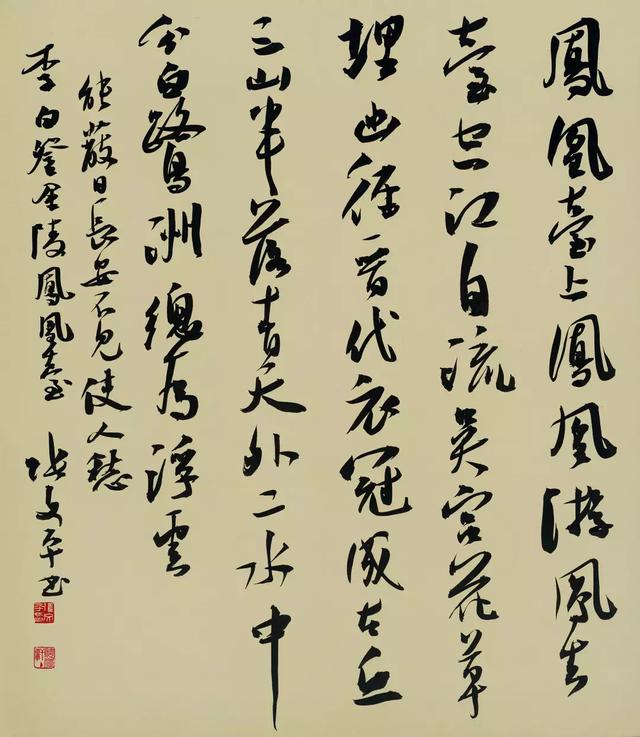 鳳凰臺上鳳凰游鳳去
臺空江自流吳宮花草
埋幽徑晉代衣冠成古丘
三山半落青天外二水中
分白鷺洲總為浮雲
能蔽日長安不見使人愁
李白登金陵鳳凰臺 張文平書